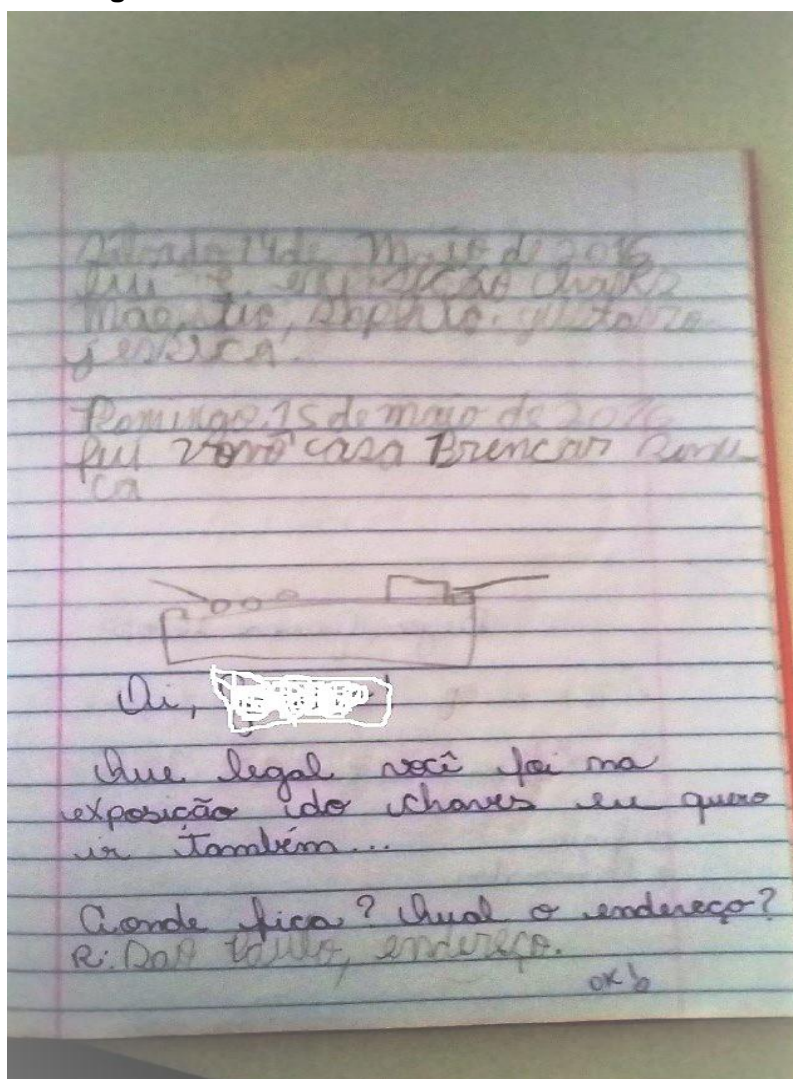 Sabado 14 de Maio de 2016
fui exposição chaves
Mãe, tio,
jessica.
Domingo, 15 de maio de 2016
fui vovó casa Brencar
ca
Oi,
Que legal você foi na
exposição do chaves eu quero
ir também...
Aonde fica? Qual o endereço?
R: Paulo, endereço.
ok!